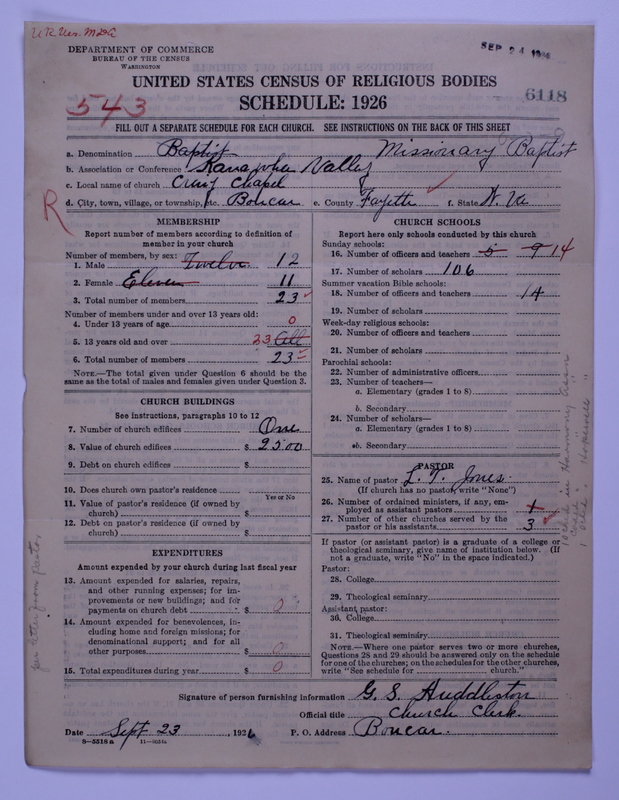 U.R. Ver. M&A
SEP 24 1926
DEPARTMENT OF COMMERCE
BUREAU OF THE CENSUS
WASHINGTON
UNITED STATES CENSUS OF RELIGIOUS BODIES
SCHEDULE: 1926
543
6118
FILL OUT A SEPARATE SCHEDULE FOR EACH CHURCH. SEE INSTRUCTIONS ON THE BACK OF THIS SHEET
a. Denomination Baptist Missionary Baptist
b. Association or Conference Kanawha Valley
c. Local name of church Craig Chapel
R
d. City, town, village, or township, etc. Boncar e. County Fayette f. State W. Va
MEMBERSHIP
Report number of members according to definition of
member in your church
Number of members, by sex:
1. Male Twelve 12
2. Female Eleven 11
3. Total number of members 23
Number of members under and over 13 years old:
4. Under 13 years of age 0
5. 13 years old and over 23 all
6. Total number of members 23
NOTE.—The total given under Question 6 should be the
same as the total of males and females given under Question 3.
CHURCH BUILDINGS
See instructions, paragraphs 10 to 12
7. Number of church edifices One
8. Value of church edifices $ 2500
9. Debt on church edifices $
10. Does church own pastor's residence
Yes or No
11. Value of pastor's residence (if owned by
church) $
12. Debt on pastor's residence (if owned by
church) $
EXPENDITURES
Amount expended by your church during last fiscal year
13. Amount expended for salaries, repairs,
and other running expenses; for im-
provements or new buildings; and for
payments on church debt $ 0
14. Amount expended for benevolences, in-
cluding home and foreign missions; for
denominational support; and for all
other purposes $ 0
15. Total expenditures during year $ 0
per letter from pastor.
CHURCH SCHOOLS
Report here only schools conducted by this church
Sunday schools:
16. Number of officers and teachers 5 9 14
17. Number of scholars 106
Summer vacation Bible schools:
18. Number of officers and teachers 14
19. Number of scholars
Week-day religious schools:
20. Number of officers and teachers
21. Number of scholars
Parochial schools:
22. Number of administrative officers
23. Number of teachers—
a. Elementary (grades 1 to 8)
b. Secondary
24. Number of scholars—
a. Elementary (grades 1 to 8)
b. Secondary
PASTOR
25. Name of pastor L. T. Jones
(If church has no pastor, write "None")
26. Number of ordained ministers, if any, em-
ployed as assistant pastors
27. Number of other churches served by the
pastor or his assistants 3
If pastor (or assistant pastor) is a graduate of a college or
theological seminary, give name of institution below. (If
not a graduate, write "No" in the space indicated.)
Pastor:
28. College
29. Theological seminary
Assistant pastor:
30. College
31. Theological seminary
NOTE.—Where one pastor serves two or more churches,
Questions 28 and 29 should be answered only on the schedule
for one of the churches; on the schedules for the other churches,
write "See schedule for church."
Signature of person furnishing information G. S. Huddleston
Official title Church Clerk.
Date Sept 23, 1926 P. O. Address Boncar.
8—5518a